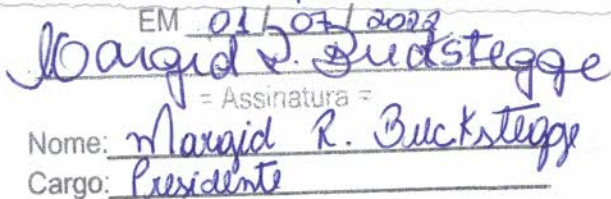 EM 01/07/2022
Margid R. Buckstegge
= Assinatura =
Nome: Margid R. Buckstegge
Cargo: Presidente